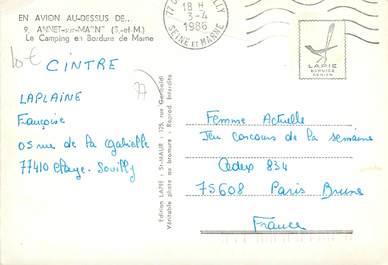 EN AVION AU-DESSUS DE..
9. ANNET-sur-MARNE (S.-et-M.)
Le Camping en Bordure de Marne
10€
CINTRE
77
LAPLAINE
Françoise
05 rue de la Gabielle
77410 Claye-Souilly
18 H
3-4
1986
SEINE ET MARNE
LAPIE
SERVICE
AERIEN
Edition LAPIE - St-MAUR - 175, rue Garibaldi
Véritable photo au bromure - Reprod Interdite
Femme Actuelle
Jeu concours de la semaine
Cedex 834
75608 Paris Brune
France